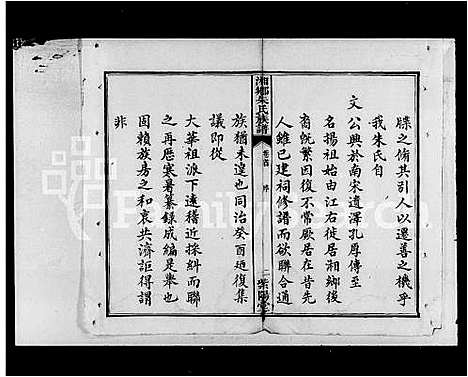 牒之脩其引人以遷善之機乎
我朱氏自
文公興於南宋遺澤孔厚傳至
名揚祖始由江右徙居湘鄉後
裔旣繁因復不常厥居在昔先
人雖已建祠修譜而欲聯合通
湘鄉朱氏族譜
卷首
序
一
紫陽堂
族猶未遑也同治癸酉廼復集
議即從
大華祖派下遠稽近採糾而聯
之再歷寒暑纂錄成編是舉也
固賴族房之和衷共濟詎得謂
非
FamilySearch